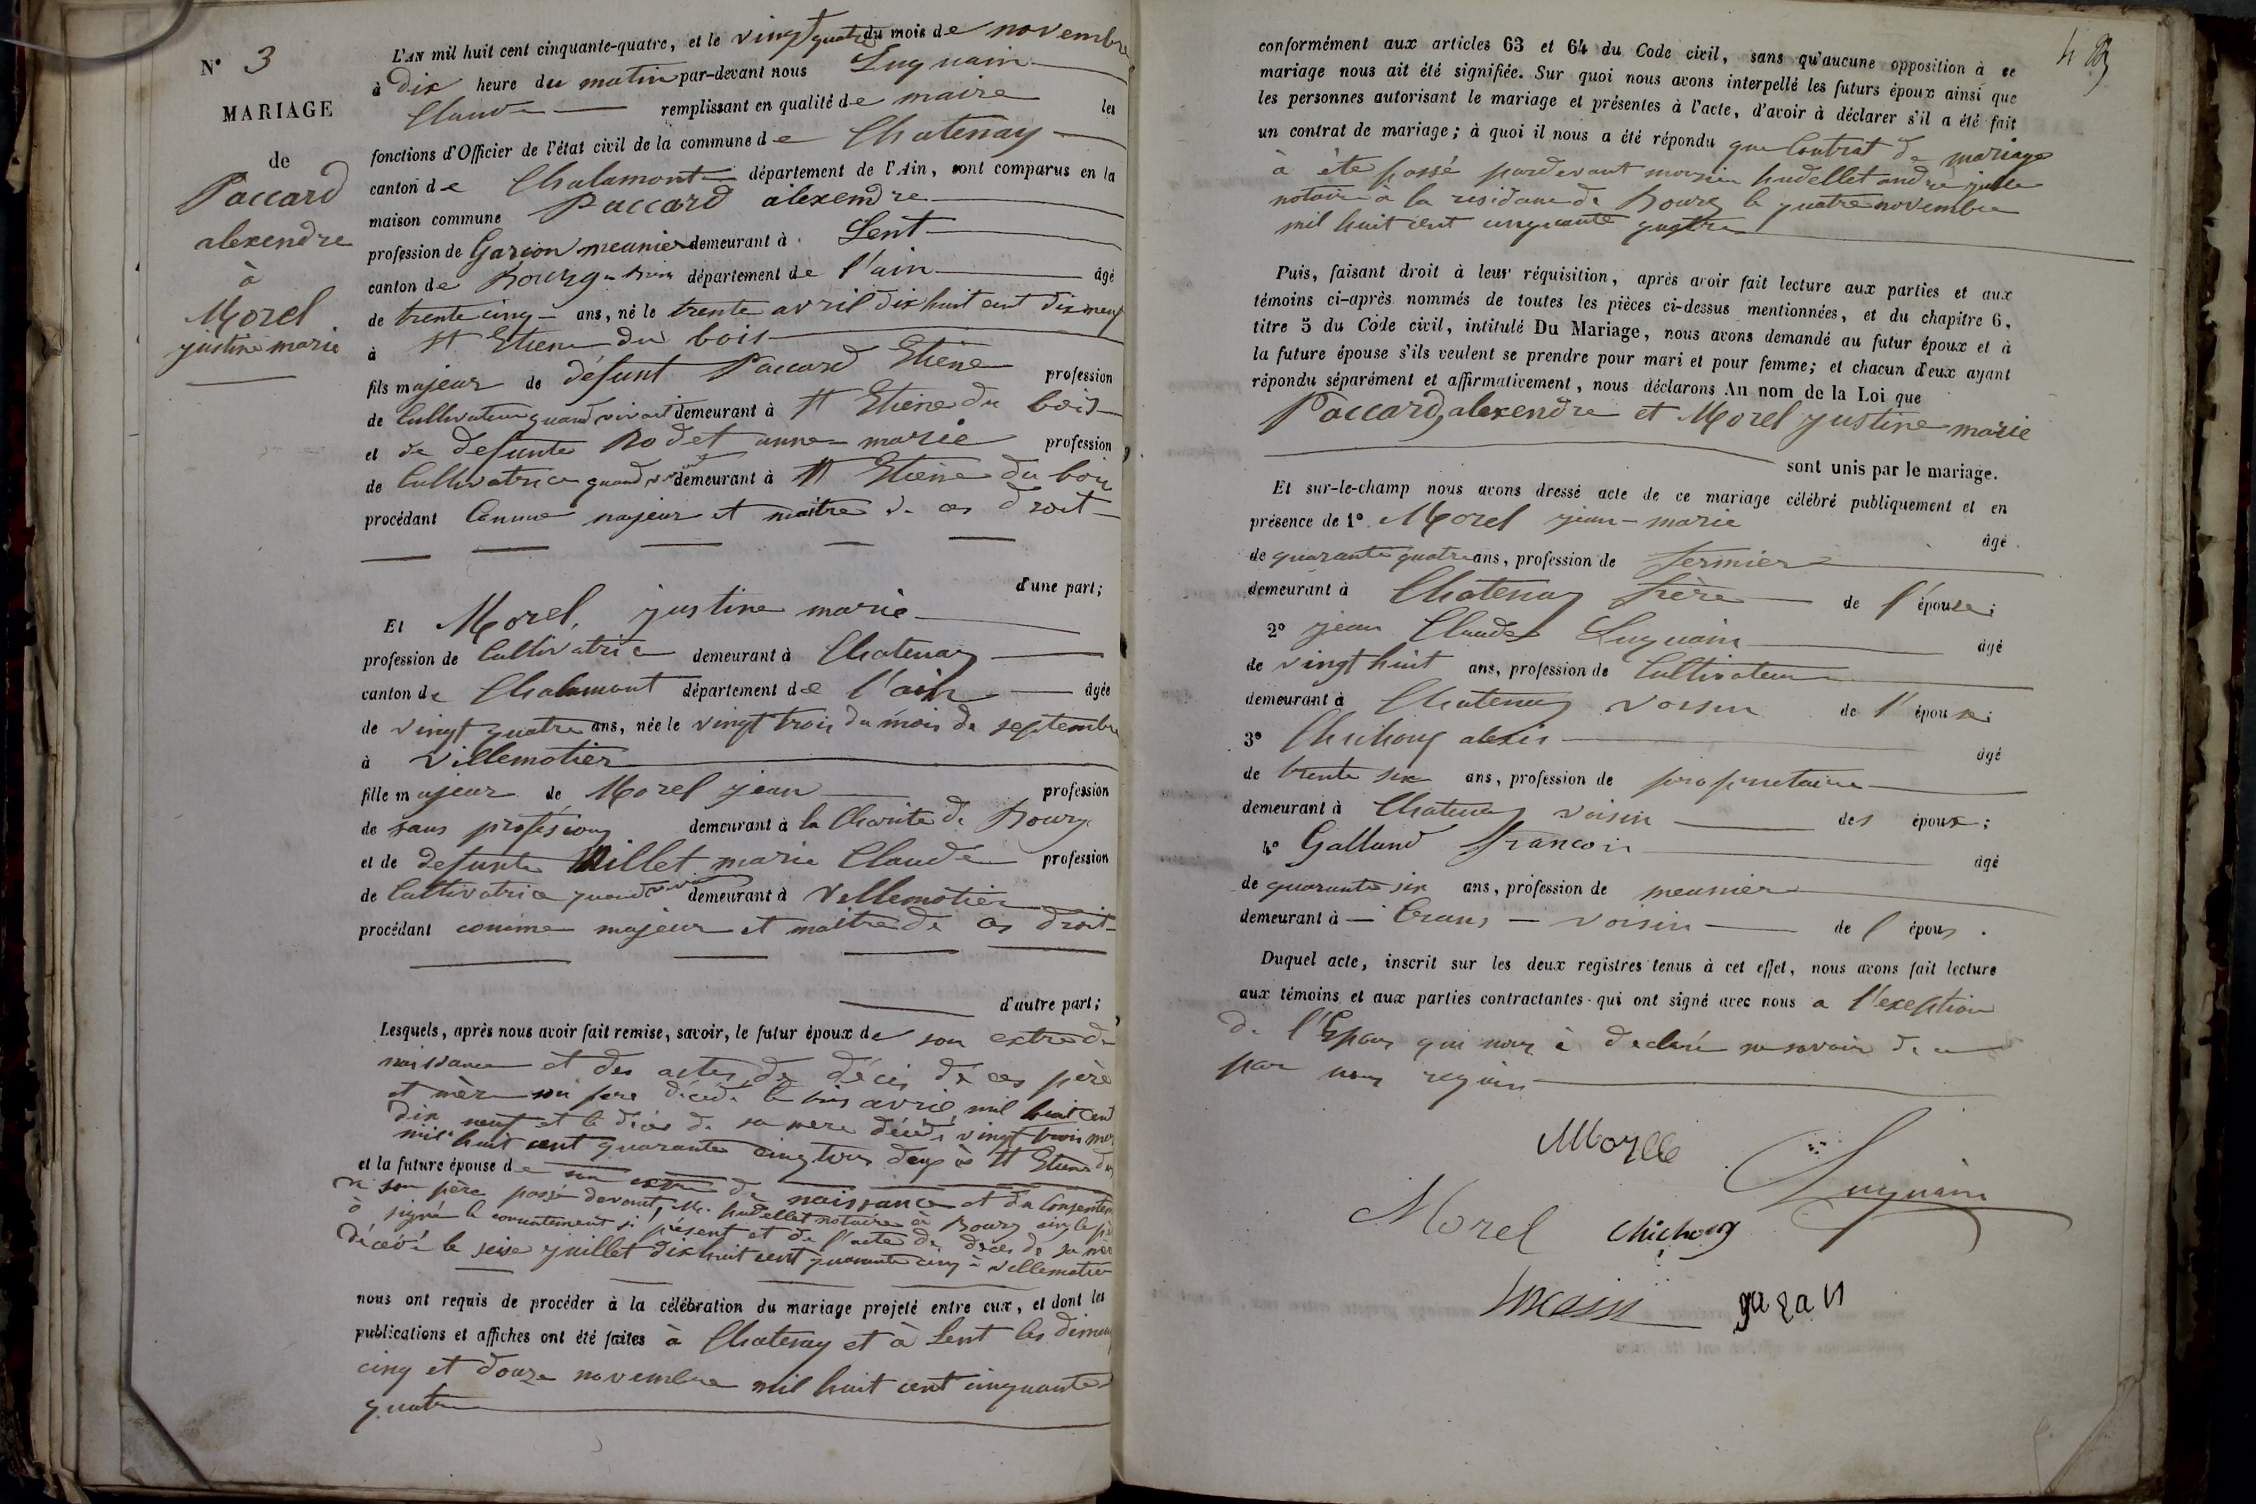 N° 3
MARIAGE
de
Paccard
alexendre
à
Morel
justine marie
L'AN mil huit cent cinquante-quatre, et le vingt quatre du mois de novembre
à dix heure du matin par-devant nous Luquain
Claude remplissant en qualité de maire les
fonctions d'Officier de l'état civil de la commune de Chatenay
canton de Chalamont département de l'Ain, sont comparus en la
maison commune Paccard alexendre
profession de Garcon meunier demeurant à Lent
canton de Bourg département de l'ain âgé
de trente cinq ans, né le trente avril dix huit cent dix neuf
à St Etiene du bois
fils majeur de défunt Paccard Etiene profession
de Cultivateur quand vivait demeurant à St Etiene du bois
et de defunte Rodet anne marie profession
de Cultivatrice quand vivait demeurant à St Etiene du bois
procédant Comme majeur et maitre de ces droit
d'une part;
Et Morel, justine marie
profession de Cultivatrice demeurant à Chatenay
canton de Chalamont département de l'ain âgée
de vingt quatre ans, née le vingt trois du mois de septembre
à Villemotier
fille majeur de Morel jean profession
de sans profesion demeurant à la Charité de Bourg
et de defunte Millet marie Claude profession
de Cultivatrice quand vivait demeurant à Villemotier
procédant comme majeur et maitre de ces droit
d'autre part;
Lesquels, après nous avoir fait remise, savoir, le futur époux de son extre de
naissance et des actes de décis de ces père
et mère son pere décédé le avril mil huit cent
dix neuf et le de sa mere décédé vingt trois
mil huit cent quarante cinq tous deux à St Etiene du
et la future épouse de son extre de naissance et du Consentement
de son père passé devant M. hudellet notaire à Bourg
à signé le si présent et de l'acte de décès de sa mère
décédé le seise juillet dix huit cent quarante cinq à Villemotier
nous ont requis de procéder à la célébration du mariage projeté entre eux, et dont les
publications et affiches ont été faites à Chatenay et à Lent les dimanche
cinq et douze novembre mil huit cent cinquante
quatre
conformément aux articles 63 et 64 du Code civil, sans qu'aucune opposition à ce
mariage nous ait été signifiée. Sur quoi nous avons interpellé les futurs époux ainsi que
les personnes autorisant le mariage et présentes à l'acte, d'avoir à déclarer s'il a été fait
un contrat de mariage; à quoi il nous a été répondu que Contrat de mariage
à éte passé pardevant hudellet andré
notaire à la residance de Bourg le quatre novembre
mil huit cent cinquante quatre
Puis, faisant droit à leur réquisition, après avoir fait lecture aux parties et aux
témoins ci-après nommés de toutes les pièces ci-dessus mentionnées, et du chapitre 6,
titre 5 du Code civil, intitulé Du Mariage, nous avons demandé au futur époux et à
la future épouse s'ils veulent se prendre pour mari et pour femme; et chacun d'eux ayant
répondu séparément et affirmativement, nous déclarons Au nom de la Loi que
Paccard, alexendre et Morel justine marie
sont unis par le mariage.
Et sur-le-champ nous avons dressé acte de ce mariage célébré publiquement et en
présence de 1° Morel jean-marie âgé
de quarante quatre ans, profession de fermier
demeurant à Chatenay frère de l'épouse;
2° jean Claude Luquain âgé
de vingt huit ans, profession de Cultivateur
demeurant à Chatenay voisin de l'épouse;
3° Chichoug alexis âgé
de trente six ans, profession de proprietaire
demeurant à Chatenay voisin des époux;
4° Galland francois âgé
de quarante six ans, profession de meunier
demeurant à Crans voisin de l épous.
Duquel acte, inscrit sur les deux registres tenus à cet effet, nous avons fait lecture
aux témoins et aux parties contractantes qui ont signé avec nous a l'exeption
de l'Epous qui nous à declaré ne savoir de ce
par nous requis
Morelle
Luquain
Morel Chichoug